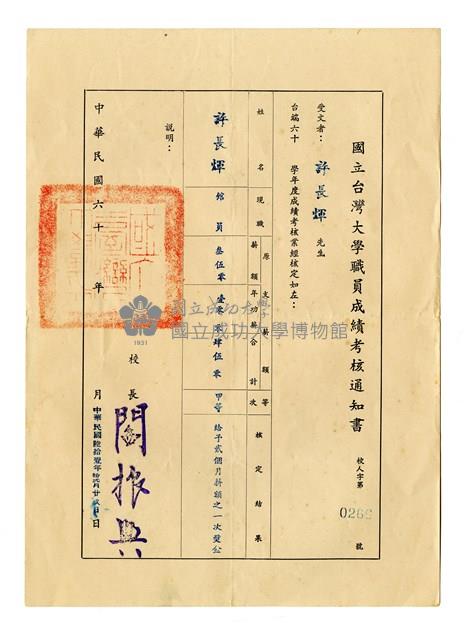 國立台灣大學職員成績考核通知書
校人字第 號
受文者：許長輝 先生
台端六十 學年度成績考核業經核定如左：
姓名 現職 原支薪額 薪額 年功薪 合計 等次 核定結果
許長輝 館員 叁伍零 壹零零 肆伍零 甲等 給予貳個月薪額之一次獎金
說明：
校長 閻振興
中華民國六十 年 月 日
國立成功大學
國立成功大學博物館
1931